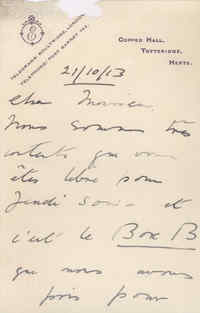 TELEGRAMS: BULLYWIRE, LONDON.
TELEPHONE: POST BARNET 142.
COPPED HALL,
TOTTERIDGE,
HERTS.
21/10/13
Cher Monsieur
Nous sommes très
contents que vous
êtes libre pour
Jeudi soir et
c'est le Box B
que nous avons
pris pour